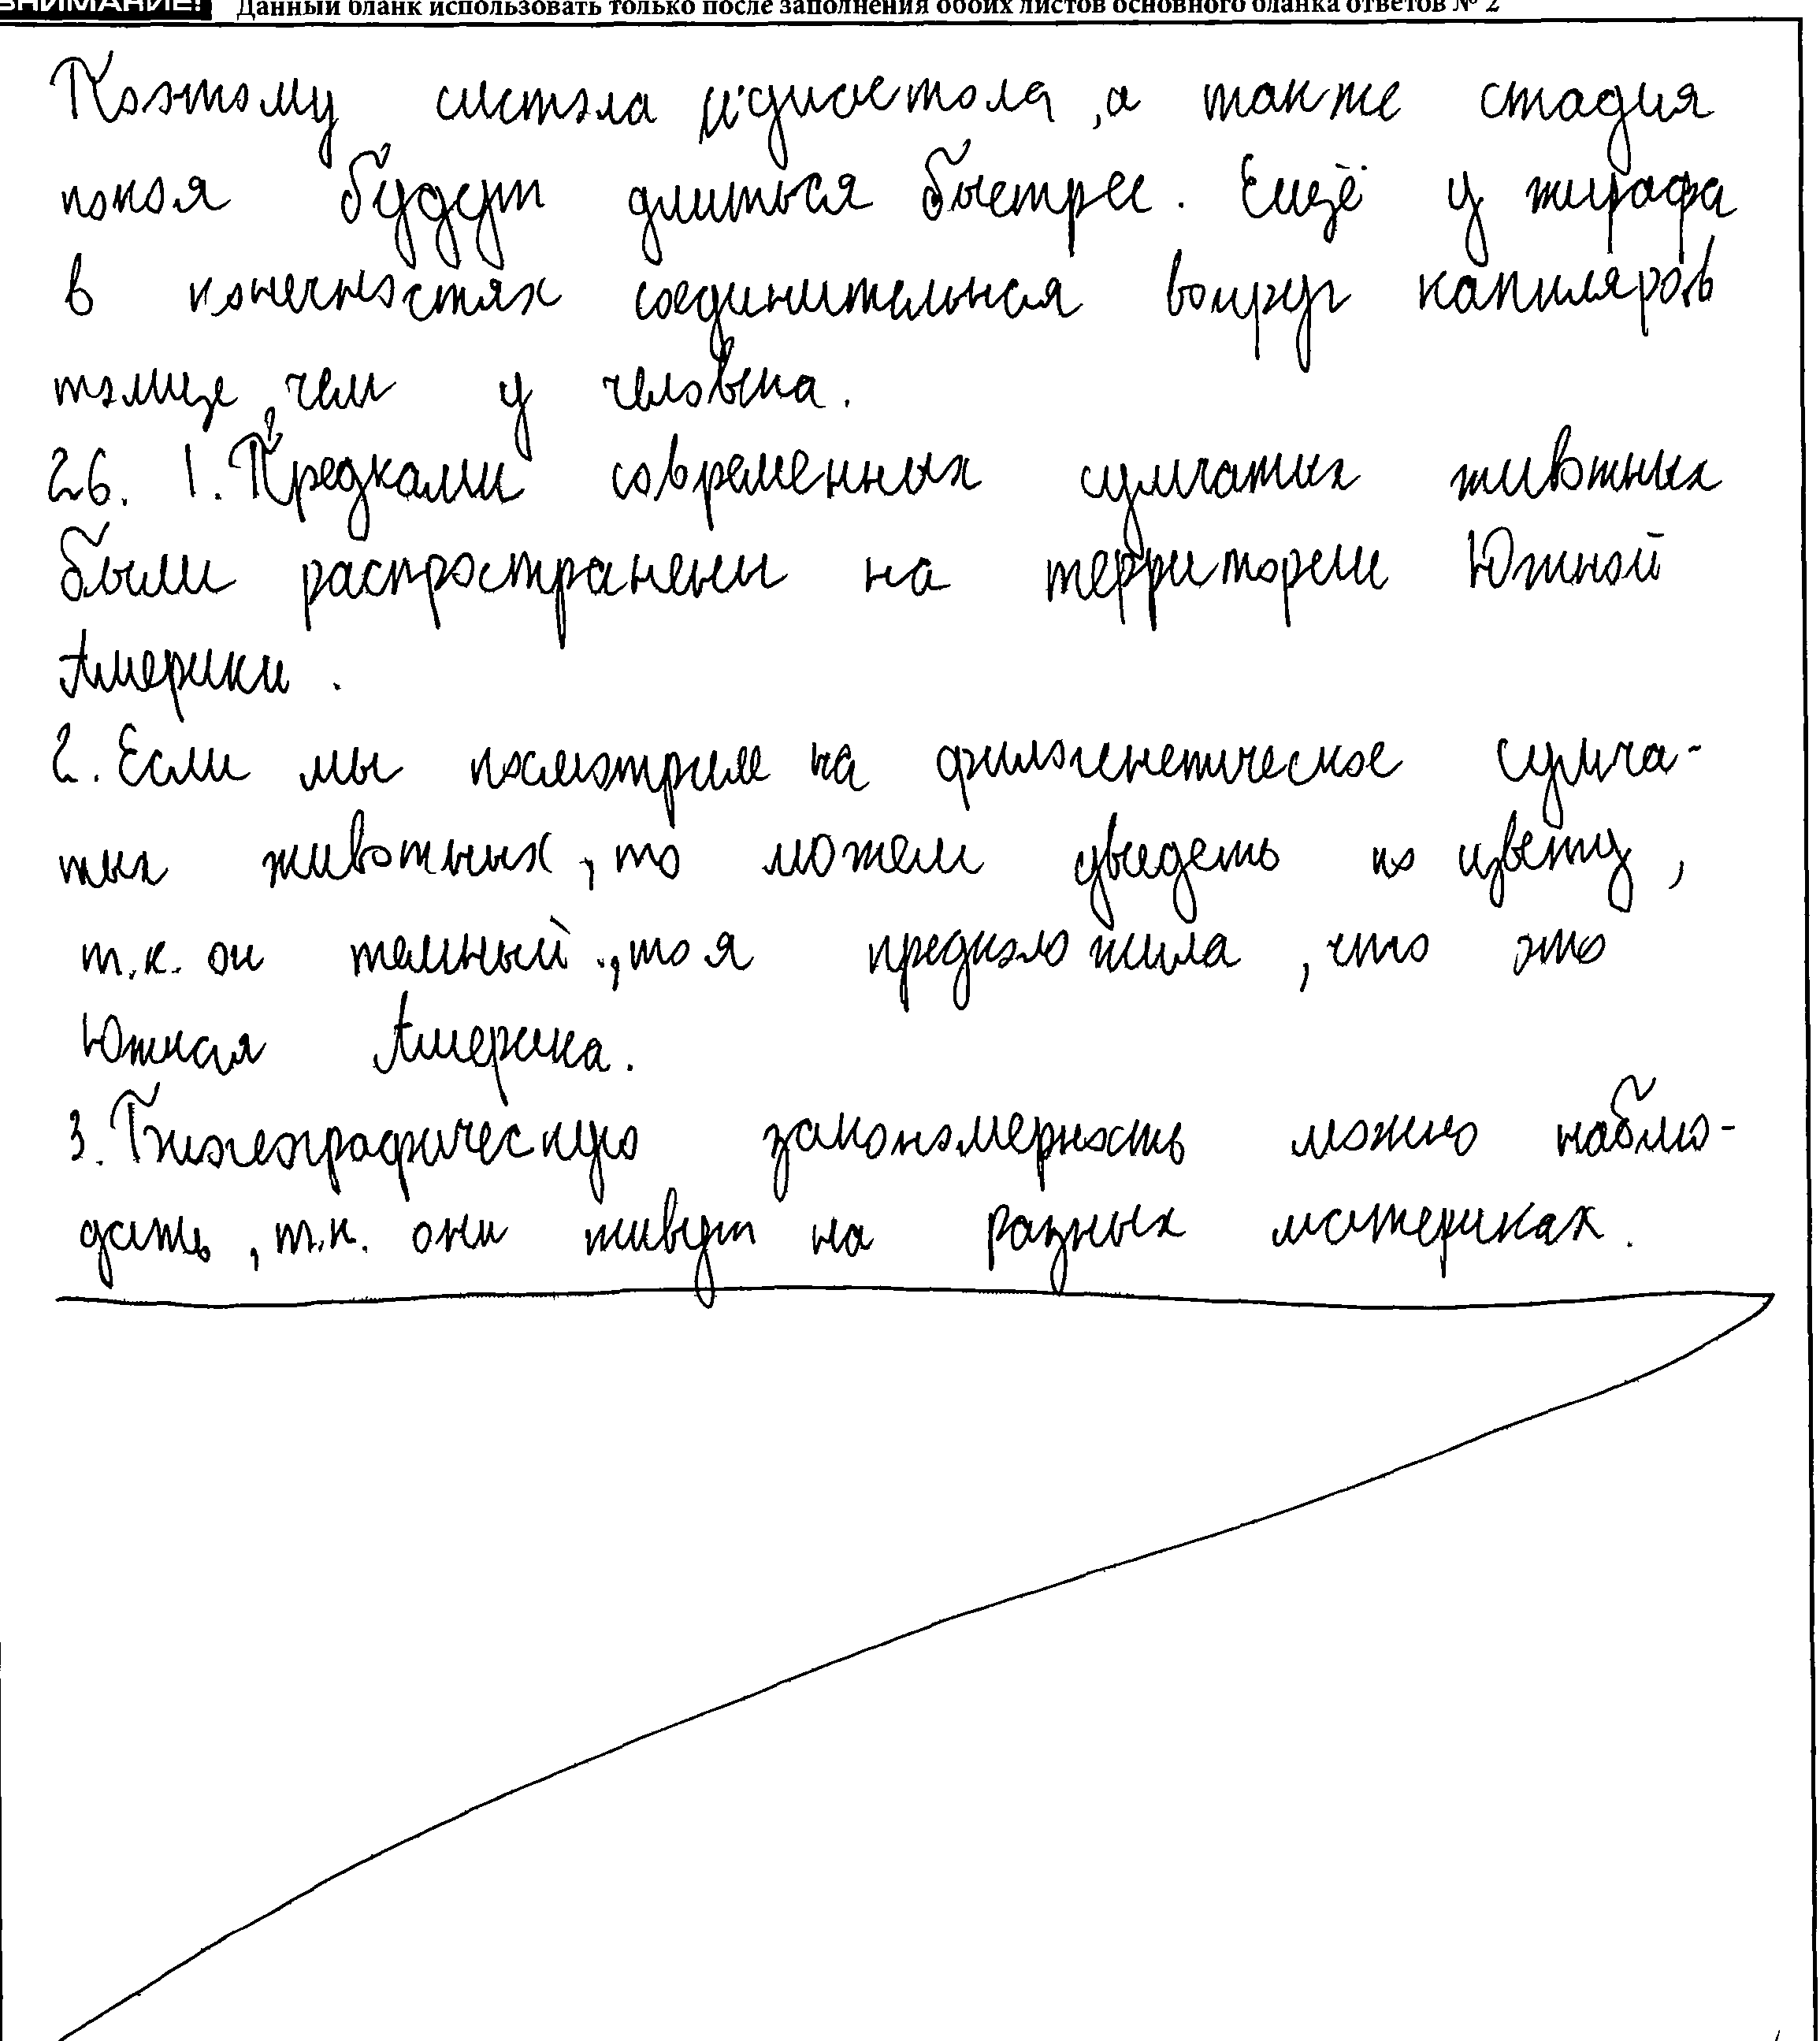 ВНИМАНИЕ! Данный бланк использовать только после заполнения обоих листов основного бланка ответов № 2
Поэтому систола и диастола, а также стадия
покоя будут длиться быстрее. Ещё у жирафа
в конечностях соединительная вокруг капиляров
толще, чем у человека.
26. 1. Предками современных сумчатых животных
были распространены на територии Южной
Америки.
2. Если мы посмотрим на филогенетическое сумча-
тых животных, то можем увидеть по цвету,
т.к. он темный, то я предположила, что это
Южная Америка.
3. Биогеографическую закономерность можно наблю-
дать, т.к. они живут на разных материках.